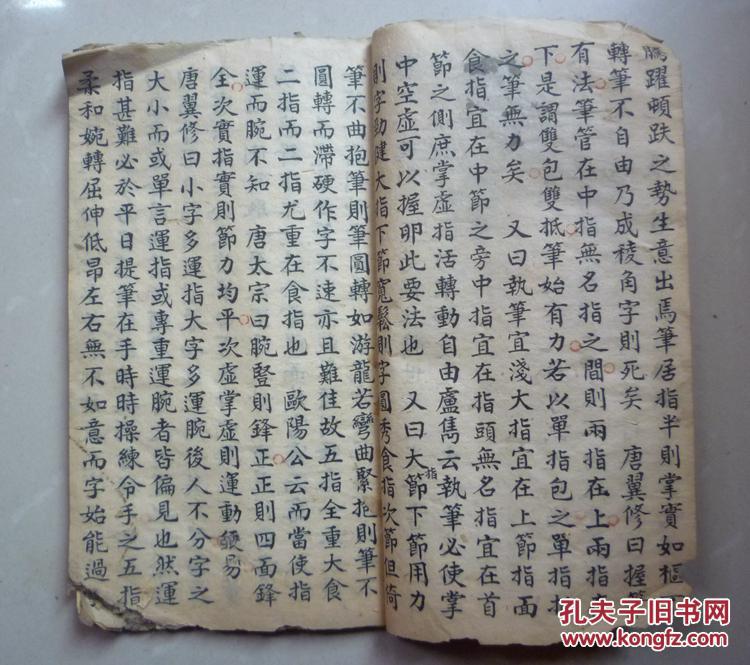 騰躍頓跌之勢生意出焉筆居指半則掌實如樞
轉筆不自由乃成稜角字則死矣 唐翼修曰握
有法筆管在中指無名指之間則兩指在上兩指
下是謂雙包雙抵筆始有力若以單指包之單指
之筆無力矣 又曰執筆宜淺大指宜在上節指面
食指宜在中節之旁中指宜在指頭無名指宜在首
節之側庶掌虛指活轉動自由盧雋云執筆必使掌
中空虛可以握卵此要法也 又曰大指節下節用力
則字勁健大指下節寬鬆則字圓秀食指次節但倚
筆不曲抱筆則筆圓轉如游龍若彎曲緊抱則筆不
圓轉而滯硬作字不速亦且難佳故五指全重大食
二指而二指尤重在食指也 歐陽公云而當使指
運而腕不知 唐太宗曰腕豎則鋒正正則四面鋒
全次實指實則節力均平次虛掌虛則運動便易
唐翼修曰小字多運指大字多運腕後人不分字之
大小而或單言運指或專重運腕者皆偏見也然運
指甚難必於平日提筆在手時時操練令手之五指
柔和婉轉屈伸低昂左右無不如意而字始能過
孔夫子旧书网
WWW.KONGFZ.COM